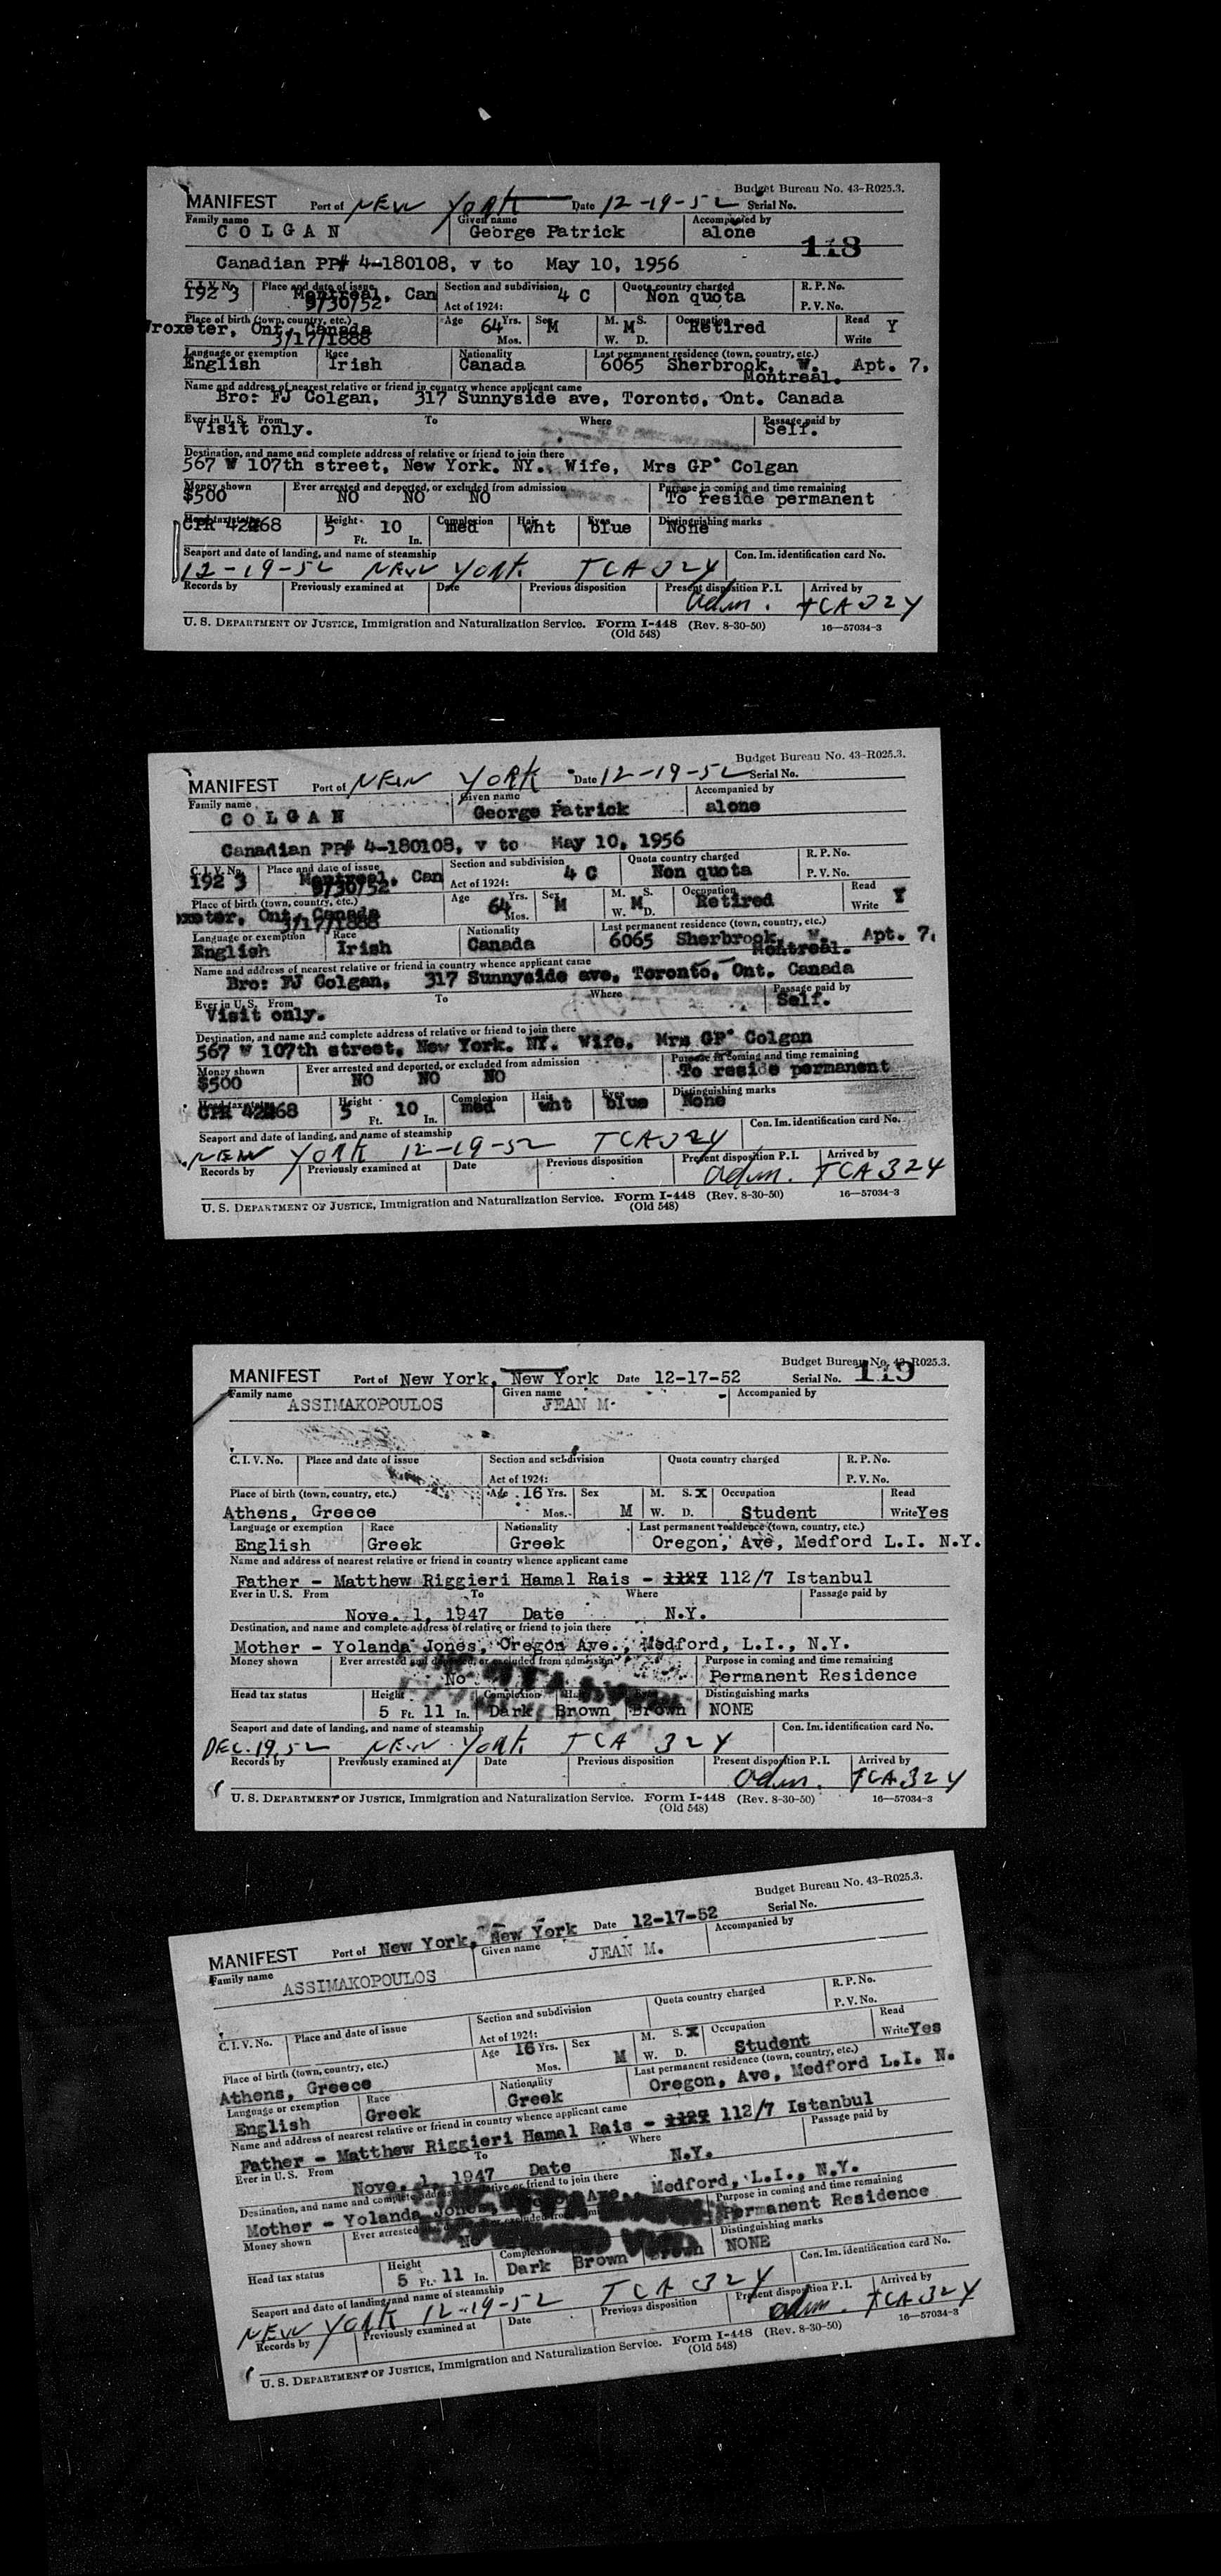 Budget Bureau No. 43-R025.3.
MANIFEST Port of NEW YORK Date 12-19-52 Serial No.
Family name Given name Accompanied by
COLGAN George Patrick alone
118
Canadian PP# 4-180108, v to May 10, 1956
C. I. V. No. Place and date of issue Section and subdivision Quota country charged R. P. No.
192 3 Montreal, Can 4 C Non quota
9/30/52 Act of 1924: P. V. No.
Place of birth (town, country, etc.) Age 64 Yrs. Sex M M. M S. Occupation Read Y
Wroxeter, Ont, Canada Retired
3/17/1888 Mos. W. D. Write
Language or exemption Race Nationality Last permanent residence (town, country, etc.)
English Irish Canada 6065 Sherbrook, W. Apt. 7,
Montreal.
Name and address of nearest relative or friend in country whence applicant came
Bro: FJ Colgan, 317 Sunnyside ave, Toronto, Ont. Canada
Ever in U. S. From To Where Passage paid by
Visit only. Self.
Destination, and name and complete address of relative or friend to join there
567 W 107th street, New York. NY. Wife, Mrs GP Colgan
Money shown Ever arrested and deported, or excluded from admission Purpose in coming and time remaining
$500 NO NO NO To reside permanent
Head tax status Height Complexion Hair Eyes Distinguishing marks
CPR 42468 5 Ft. 10 In. med wht blue None
Seaport and date of landing, and name of steamship Con. Im. identification card No.
12-19-52 NEW YORK TCA 324
Records by Previously examined at Date Previous disposition Present disposition P. I. Arrived by
adm. TCA 324
U. S. DEPARTMENT OF JUSTICE, Immigration and Naturalization Service. Form I-448 (Rev. 8-30-50) 16—57034-3
(Old 548)
Budget Bureau No. 43-R025.3.
MANIFEST Port of NEW YORK Date 12-19-52 Serial No.
Family name Given name Accompanied by
COLGAN George Patrick alone
Canadian PP# 4-180108, v to May 10, 1956
C. I. V. No. Place and date of issue Section and subdivision Quota country charged R. P. No.
192 3 Montreal, Can 4 C Non quota
9/30/52 Act of 1924: P. V. No.
Place of birth (town, country, etc.) Age 64 Yrs. Sex M M. M S. Occupation Read Y
oxeter, Ont, Canada Retired
3/17/1888 Mos. W. D. Write
Language or exemption Race Nationality Last permanent residence (town, country, etc.)
English Irish Canada 6065 Sherbrook, W. Apt. 7,
Montreal.
Name and address of nearest relative or friend in country whence applicant came
Bro: FJ Colgan, 317 Sunnyside ave, Toronto, Ont. Canada
Ever in U. S. From To Where Passage paid by
Visit only. Self.
Destination, and name and complete address of relative or friend to join there
567 W 107th street, New York. NY. Wife, Mrs GP Colgan
Money shown Ever arrested and deported, or excluded from admission Purpose in coming and time remaining
$500 NO NO NO To reside permanent
Head tax status Height Complexion Hair Eyes Distinguishing marks
CPR 42468 5 Ft. 10 In. med wht blue None
Seaport and date of landing, and name of steamship Con. Im. identification card No.
NEW YORK 12-19-52 TCA 324
Records by Previously examined at Date Previous disposition Present disposition P. I. Arrived by
adm. TCA 324
U. S. DEPARTMENT OF JUSTICE, Immigration and Naturalization Service. Form I-448 (Rev. 8-30-50) 16—57034-3
(Old 548)
Budget Bureau No. 43-R025.3.
MANIFEST Port of New York, New York Date 12-17-52 Serial No. 119
Family name Given name Accompanied by
ASSIMAKOPOULOS JEAN M.
C. I. V. No. Place and date of issue Section and subdivision Quota country charged R. P. No.
Act of 1924: P. V. No.
Place of birth (town, country, etc.) Age 16 Yrs. Sex M. S. X Occupation Read
Athens, Greece Mos. M W. D. Student Write Yes
Language or exemption Race Nationality Last permanent residence (town, country, etc.)
English Greek Greek Oregon, Ave, Medford L.I. N.Y.
Name and address of nearest relative or friend in country whence applicant came
Father - Matthew Riggieri Hamal Rais - 112/7 Istanbul
Ever in U. S. From To Where Passage paid by
Nove. 1, 1947 Date N.Y.
Destination, and name and complete address of relative or friend to join there
Mother - Yolanda Jones, Oregon Ave., Medford, L.I., N.Y.
Money shown Ever arrested and deported, or excluded from admission Purpose in coming and time remaining
No Permanent Residence
Head tax status Height Complexion Hair Eyes Distinguishing marks
5 Ft. 11 In. Dark Brown Brown NONE
Seaport and date of landing, and name of steamship Con. Im. identification card No.
DEC. 19, 52 NEW YORK TCA 324
Records by Previously examined at Date Previous disposition Present disposition P. I. Arrived by
adm. TCA 324
U. S. DEPARTMENT OF JUSTICE, Immigration and Naturalization Service. Form I-448 (Rev. 8-30-50) 16—57034-3
(Old 548)
Budget Bureau No. 43-R025.3.
MANIFEST Port of New York, New York Date 12-17-52 Serial No.
Family name Given name Accompanied by
ASSIMAKOPOULOS JEAN M.
C. I. V. No. Place and date of issue Section and subdivision Quota country charged R. P. No.
Act of 1924: P. V. No.
Place of birth (town, country, etc.) Age 16 Yrs. Sex M. S. X Occupation Read
Athens, Greece Mos. M W. D. Student Write Yes
Language or exemption Race Nationality Last permanent residence (town, country, etc.)
English Greek Greek Oregon, Ave, Medford L.I. N.
Name and address of nearest relative or friend in country whence applicant came
Father - Matthew Riggieri Hamal Rais - 112/7 Istanbul
Ever in U. S. From To Where Passage paid by
Nove. 1, 1947 Date N.Y.
Destination, and name and complete address of relative or friend to join there
Mother - Yolanda Jones, Ave., Medford, L.I., N.Y.
Money shown Ever arrested Purpose in coming and time remaining
No Permanent Residence
Head tax status Height Complexion Distinguishing marks
5 Ft. 11 In. Dark Brown Brown NONE
Seaport and date of landing, and name of steamship Con. Im. identification card No.
NEW YORK 12-19-52 TCA 324
Records by Previously examined at Date Previous disposition Present disposition P. I. Arrived by
adm. TCA 324
U. S. DEPARTMENT OF JUSTICE, Immigration and Naturalization Service. Form I-448 (Rev. 8-30-50) 16—57034-3
(Old 548)